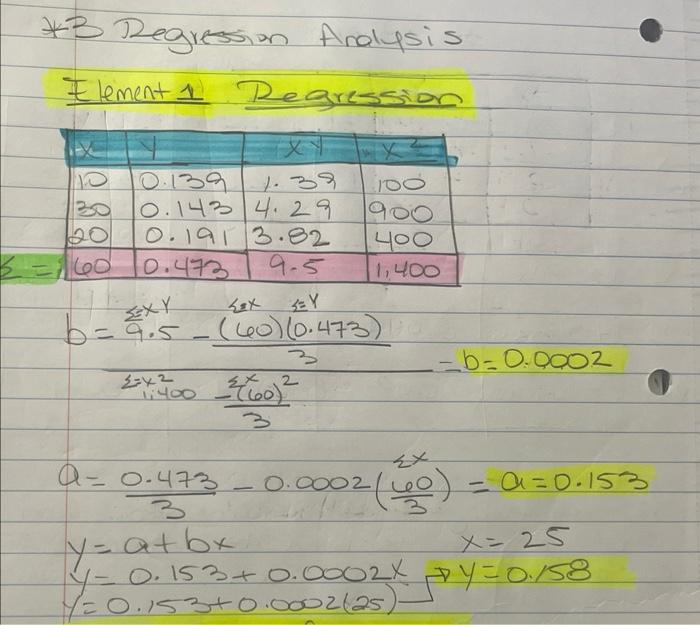 *3 Regression Analysis
Element 1 Regression
X Y XY X²
10 0.139 1.39 100
30 0.143 4.29 900
20 0.191 3.82 400
Σ = 60 0.473 9.5 1,400
Σ=XY Σ=X Σ=Y
b = 9.5 - (60)(0.473)
3
= b = 0.0002
Σ=X² ΣX
1,400 - (60)²
3
ΣX
a = 0.473 - 0.0002 (60) = a = 0.153
3 3
y = a + bx x = 25
y = 0.153 + 0.0002x → y = 0.158
y = 0.153 + 0.0002(25)